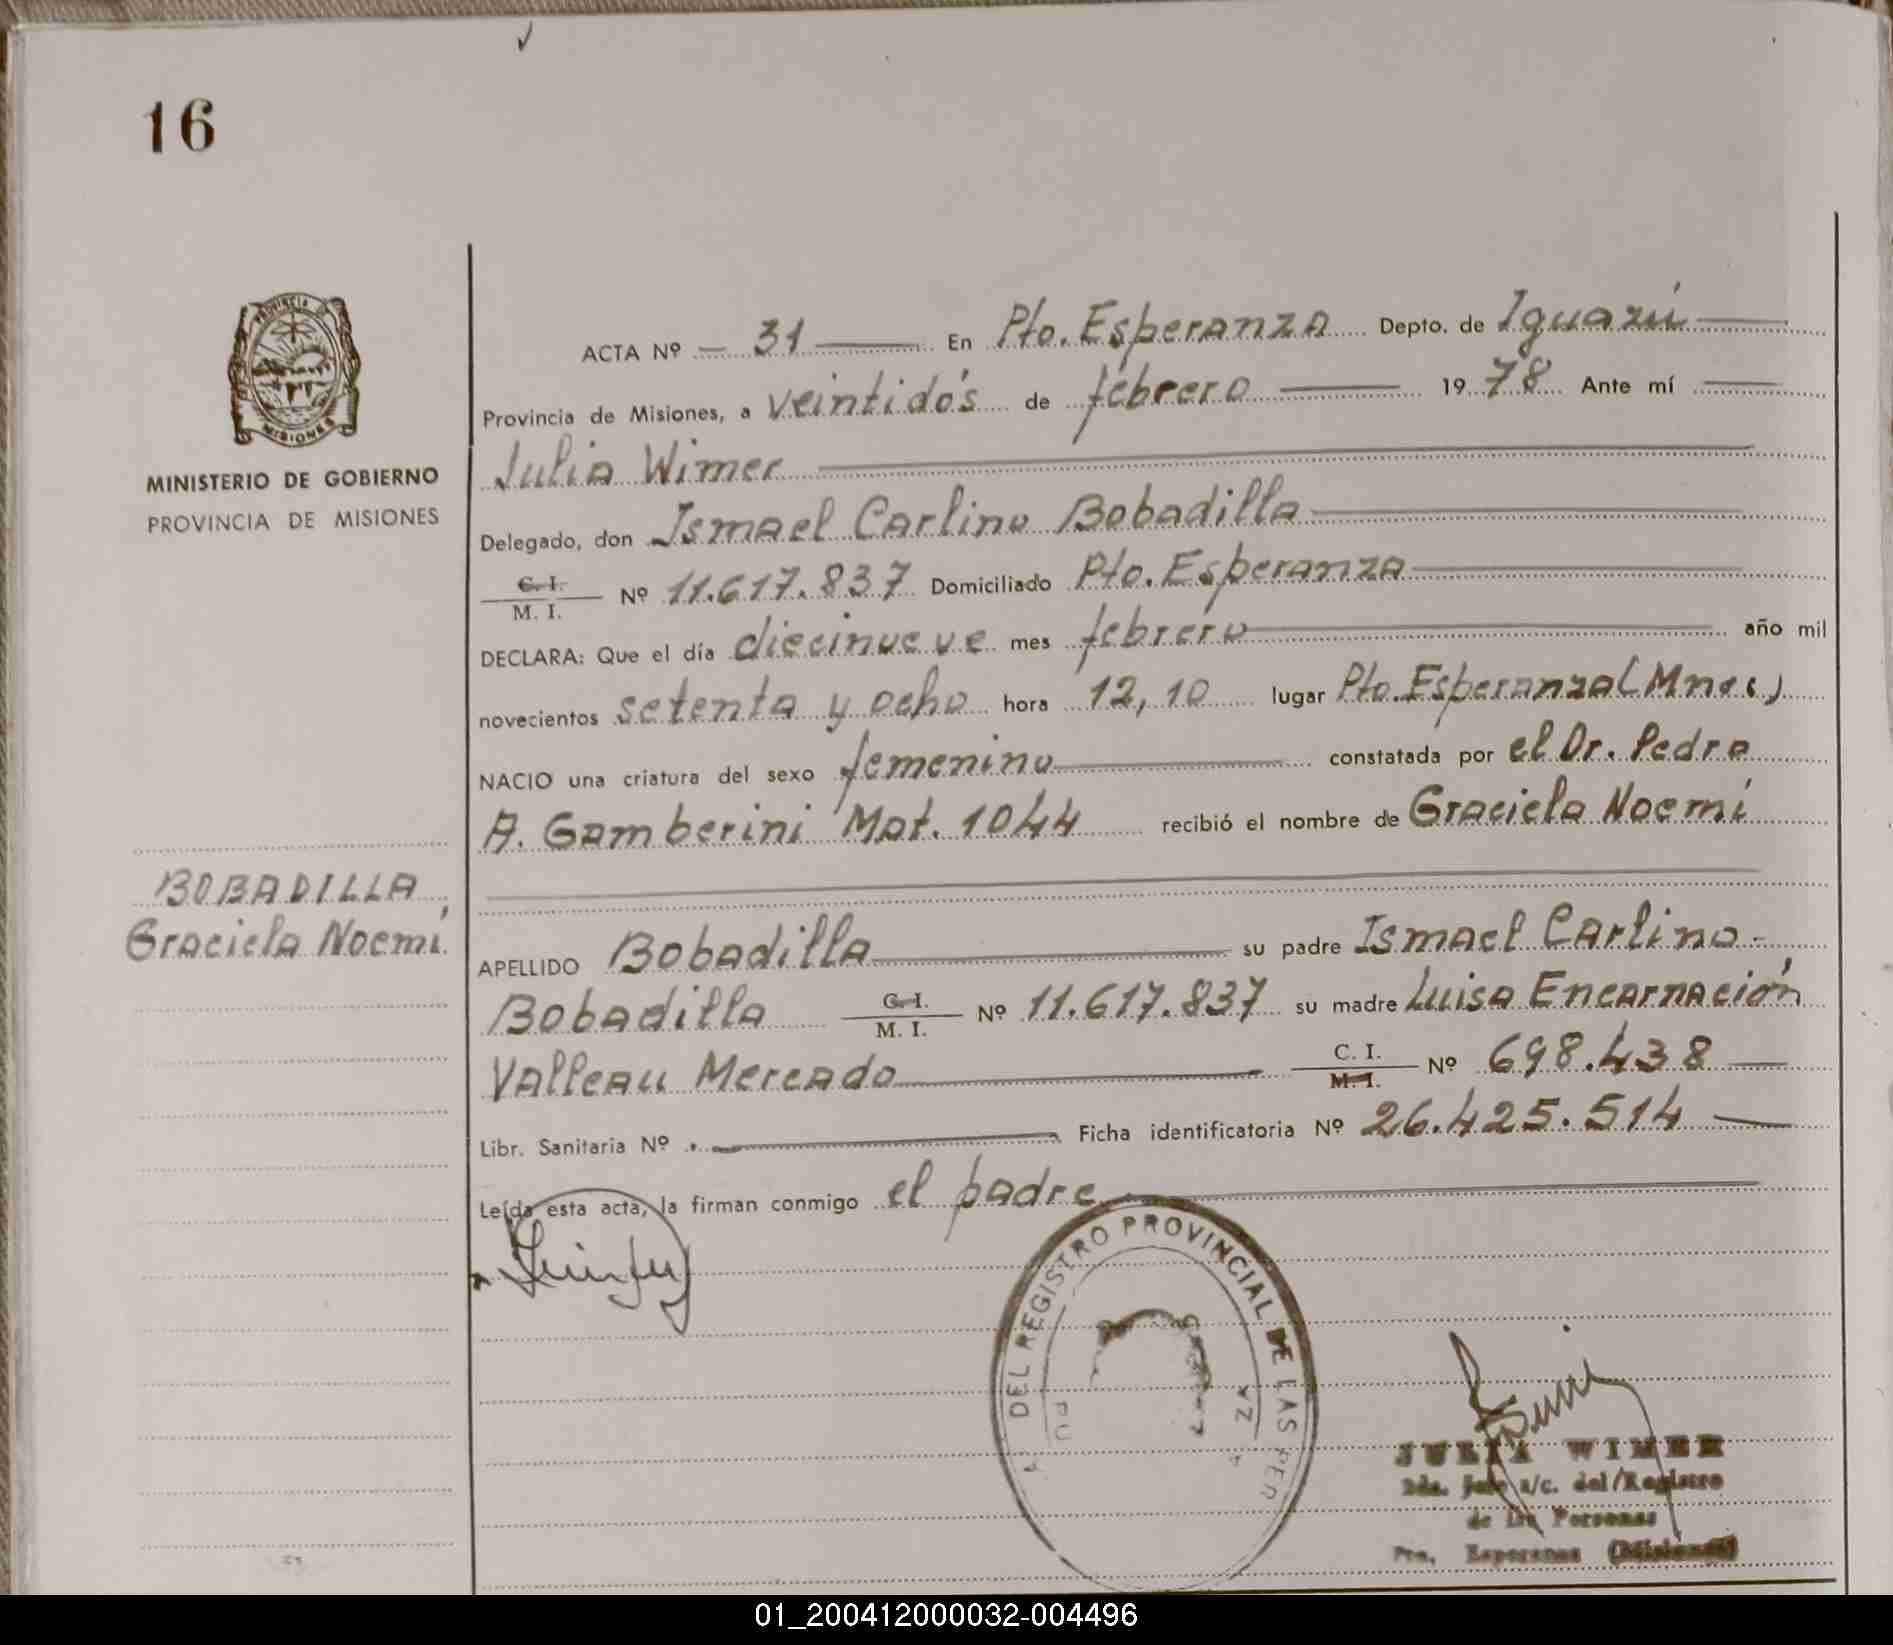 16
PROVINCIA DE
MISIONES
MINISTERIO DE GOBIERNO
PROVINCIA DE MISIONES
BOBADILLA,
Graciela Noemí.
ACTA Nº — 31 — En Pto. Esperanza Depto. de Iguazú —
Provincia de Misiones, a veintidós de febrero — 19 78 Ante mí —
Julia Wimer —
Delegado, don Ismael Carlino Bobadilla —
C. I. / M. I. Nº 11.617.837 Domiciliado Pto. Esperanza —
DECLARA: Que el día diecinueve mes febrero — año mil
novecientos setenta y ocho hora 12,10 lugar Pto. Esperanza (Mnes)
NACIO una criatura del sexo femenino — constatada por el Dr. Pedro
A. Gamberini Mat. 1044 recibió el nombre de Graciela Noemí
APELLIDO Bobadilla — su padre Ismael Carlino -
Bobadilla C. I. / M. I. Nº 11.617.837 su madre Luisa Encarnación
Valleau Mercado — C. I. / M. I. Nº 698.438 —
Libr. Sanitaria Nº — Ficha identificatoria Nº 26.425.514 —
Leída esta acta, la firman conmigo el padre. —
DEL REGISTRO PROVINCIAL DE LAS PER
JULIA WIMER
2da. Jefe a/c. del Registro
de las Personas
Pto. Esperanza (Misiones)
01_200412000032-004496